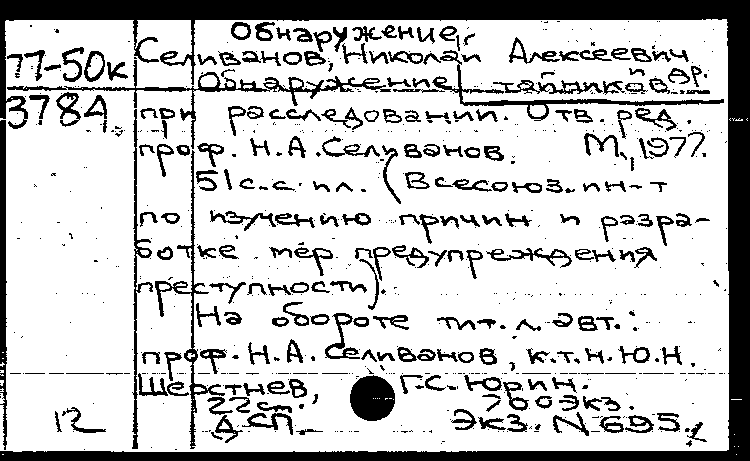 Обнаружение
77-50к Селиванов, Николай Алексеевич
Обнаружение тайников и др.
3784 при расследовании. Отв. ред.
проф. Н.А. Селиванов. М., 1977.
51 с. с ил. (Всесоюз. ин-т
по изучению причин и разра-
ботке мер предупреждения
преступности).
На обороте тит. л. авт.:
проф. Н.А. Селиванов, к.т.н. Ю.Н.
Шерстнев, Г.С. Юрин.
22 см. 700 экз.
12 ДСП. Экз. N 695.